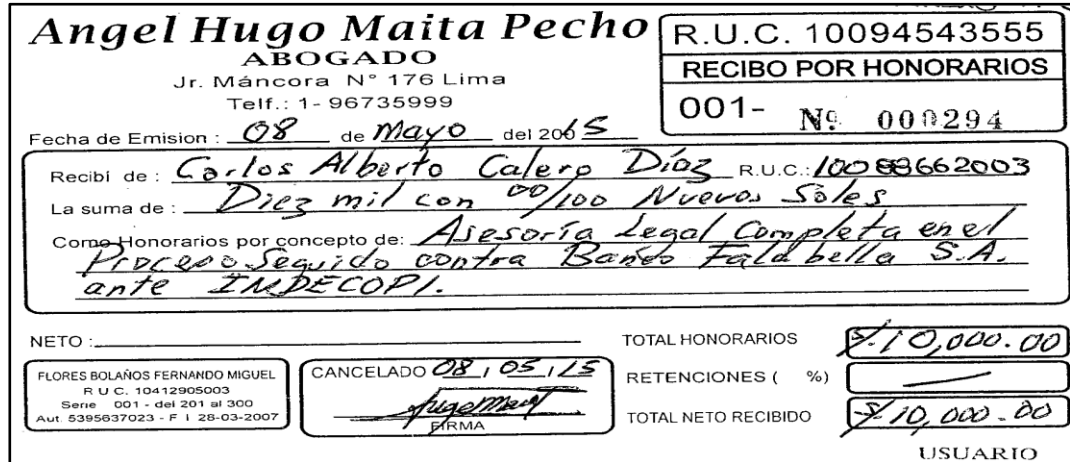 Angel Hugo Maita Pecho
ABOGADO
Jr. Máncora N° 176 Lima
Telf.: 1- 96735999
R.U.C. 10094543555
RECIBO POR HONORARIOS
001- Nº 000294
Fecha de Emision : 08 de Mayo del 2015
Recibí de : Carlos Alberto Calero Díaz R.U.C.: 10088662003
La suma de : Diez mil con 00/100 Nuevos Soles
Como Honorarios por concepto de: Asesoría Legal Completa en el
Proceso Seguido contra Banco Falabella S.A.
ante INDECOPI.
NETO :
FLORES BOLAÑOS FERNANDO MIGUEL
R U C. 10412905003
Serie 001 - del 201 al 300
Aut. 5395637023 - F I 28-03-2007
CANCELADO 08, 05, 15
FIRMA
TOTAL HONORARIOS S/. 10,000.00
RETENCIONES ( %) —
TOTAL NETO RECIBIDO S/. 10,000.00
USUARIO